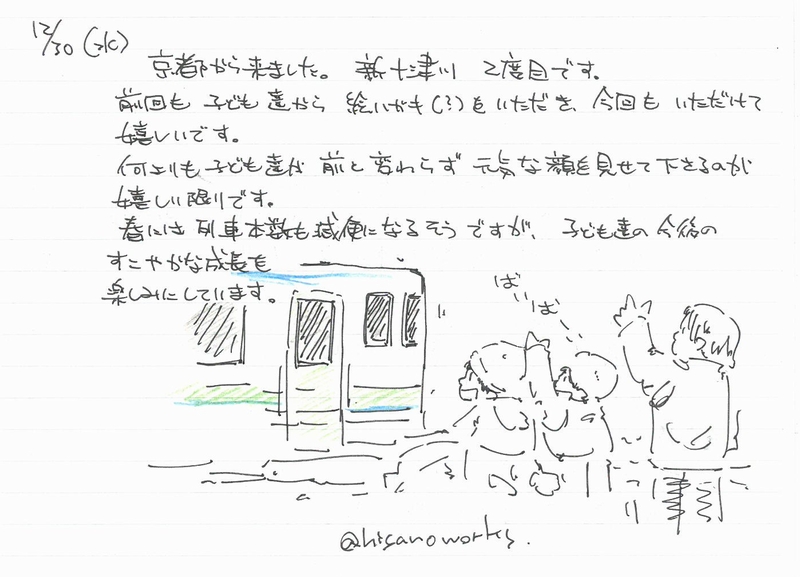 12/30 (水)
京都から来ました。 新十津川 2度目です。
前回も 子ども達から 絵はがき(?)をいただき、今回も いただけて
嬉しいです。
何よりも 子ども達が 前と変わらず 元気な顔を見せて下さるのが
嬉しい限りです。
春には 列車本数も減便になるそうですが、 子ども達の 今後の
すこやかな成長を
楽しみにしています。
ばいばーい
@hisanoworks.